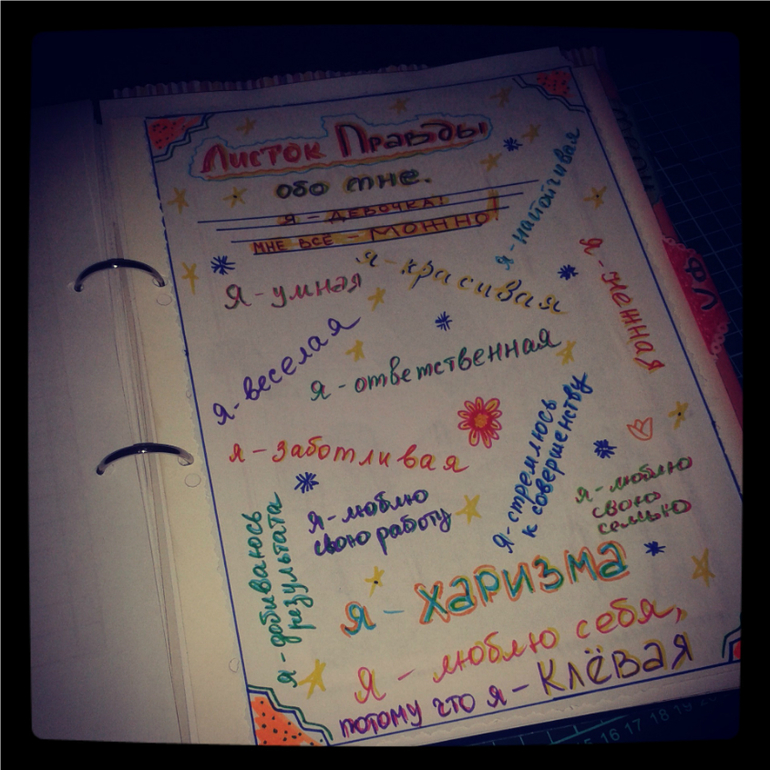 Листок Правды
обо мне.
Я - ДЕВОЧКА!
МНЕ ВСЁ - МОЖНО!
Я - настойчивая
Я - умная
Я - красивая
Я - нежная
Я - веселая
Я - ответственная
Я - заботливая
Я - стремлюсь
к совершенству
Я - люблю
свою работу
Я - люблю
свою
семью
Я - добиваюсь
результата
Я - харизма
Я - люблю себя,
потому что я - КЛЁВАЯ
ФЛ
15 16 17 18 19 20